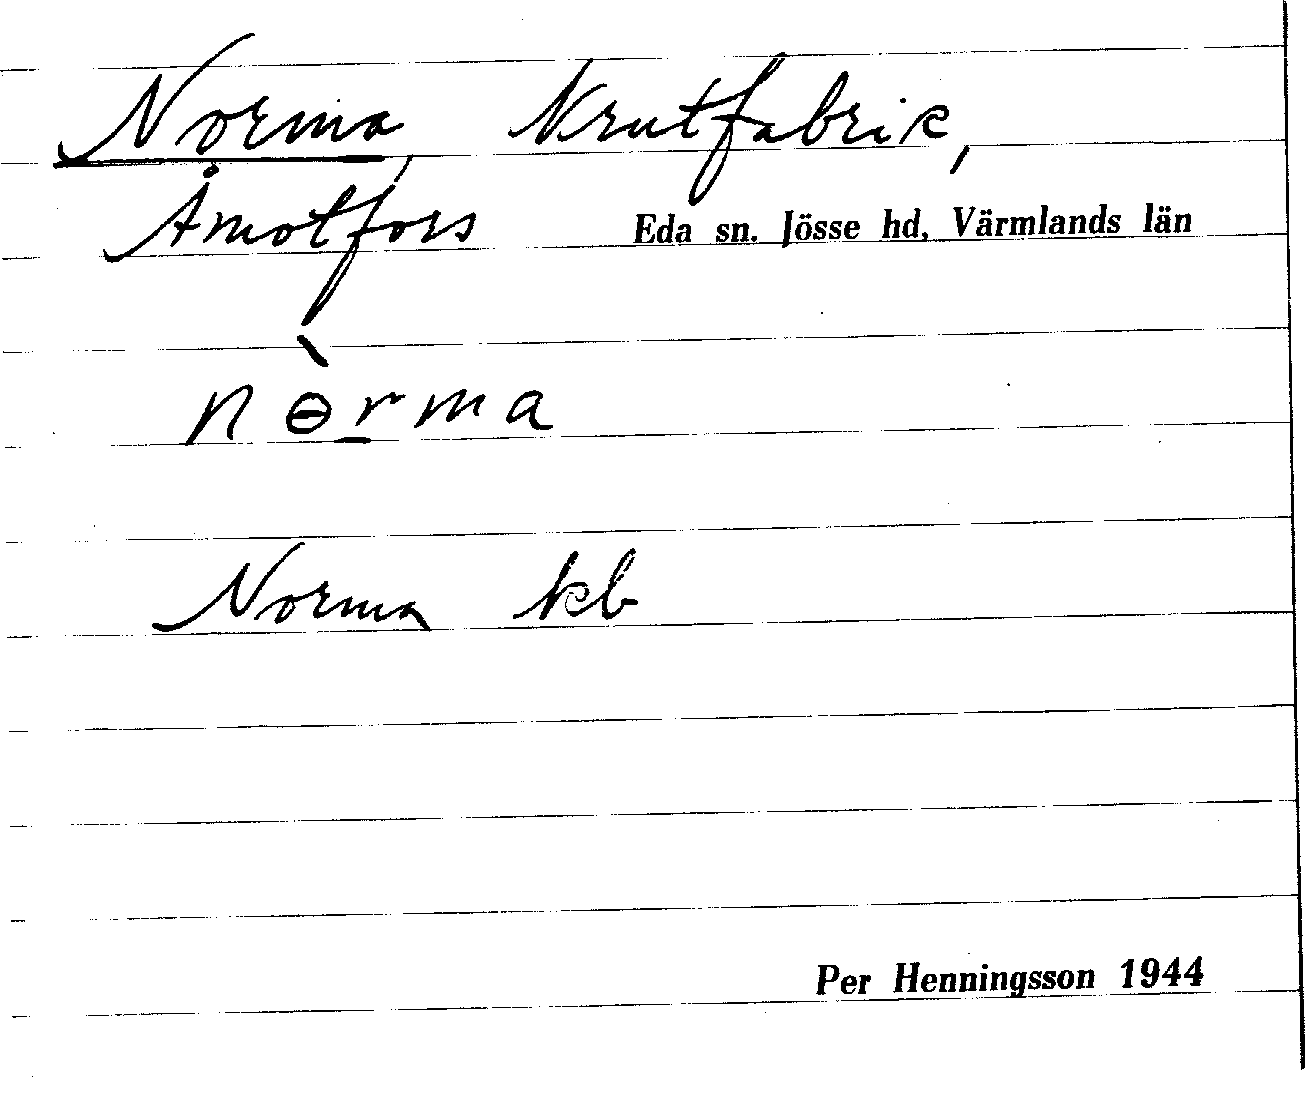 Norma, Krutfabrik,
Åmotfors Eda sn. Jösse hd, Värmlands län
nɵ̀r̲ma
Norma kb
Per Henningsson 1944